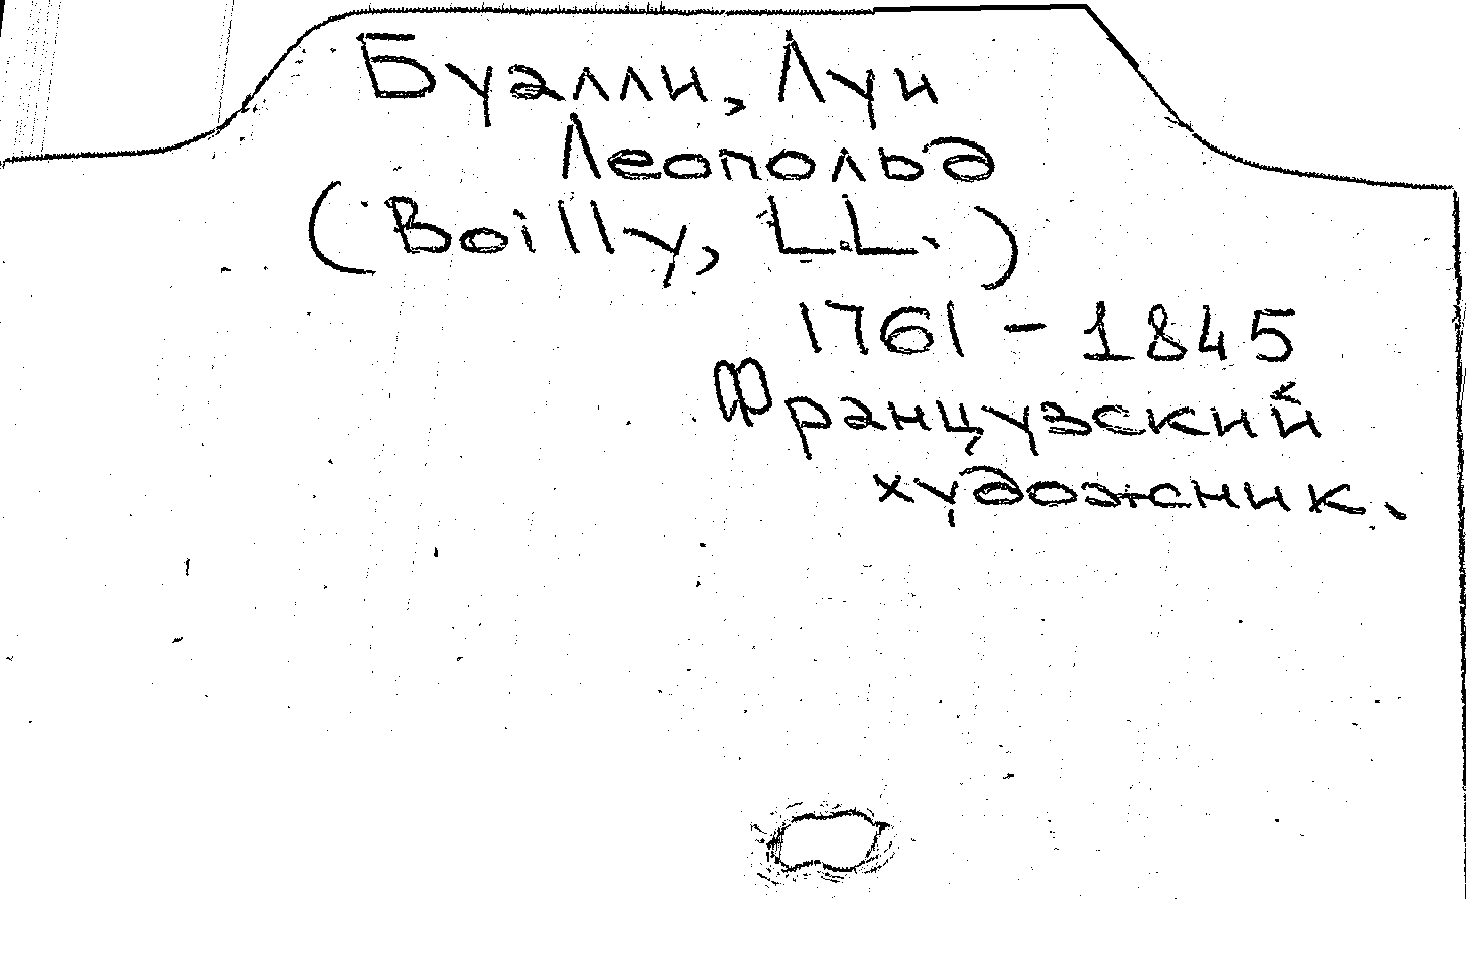 Буалли, Луи
Леопольд
(Boilly, L.L.)
1761 - 1845
Французский
художник.